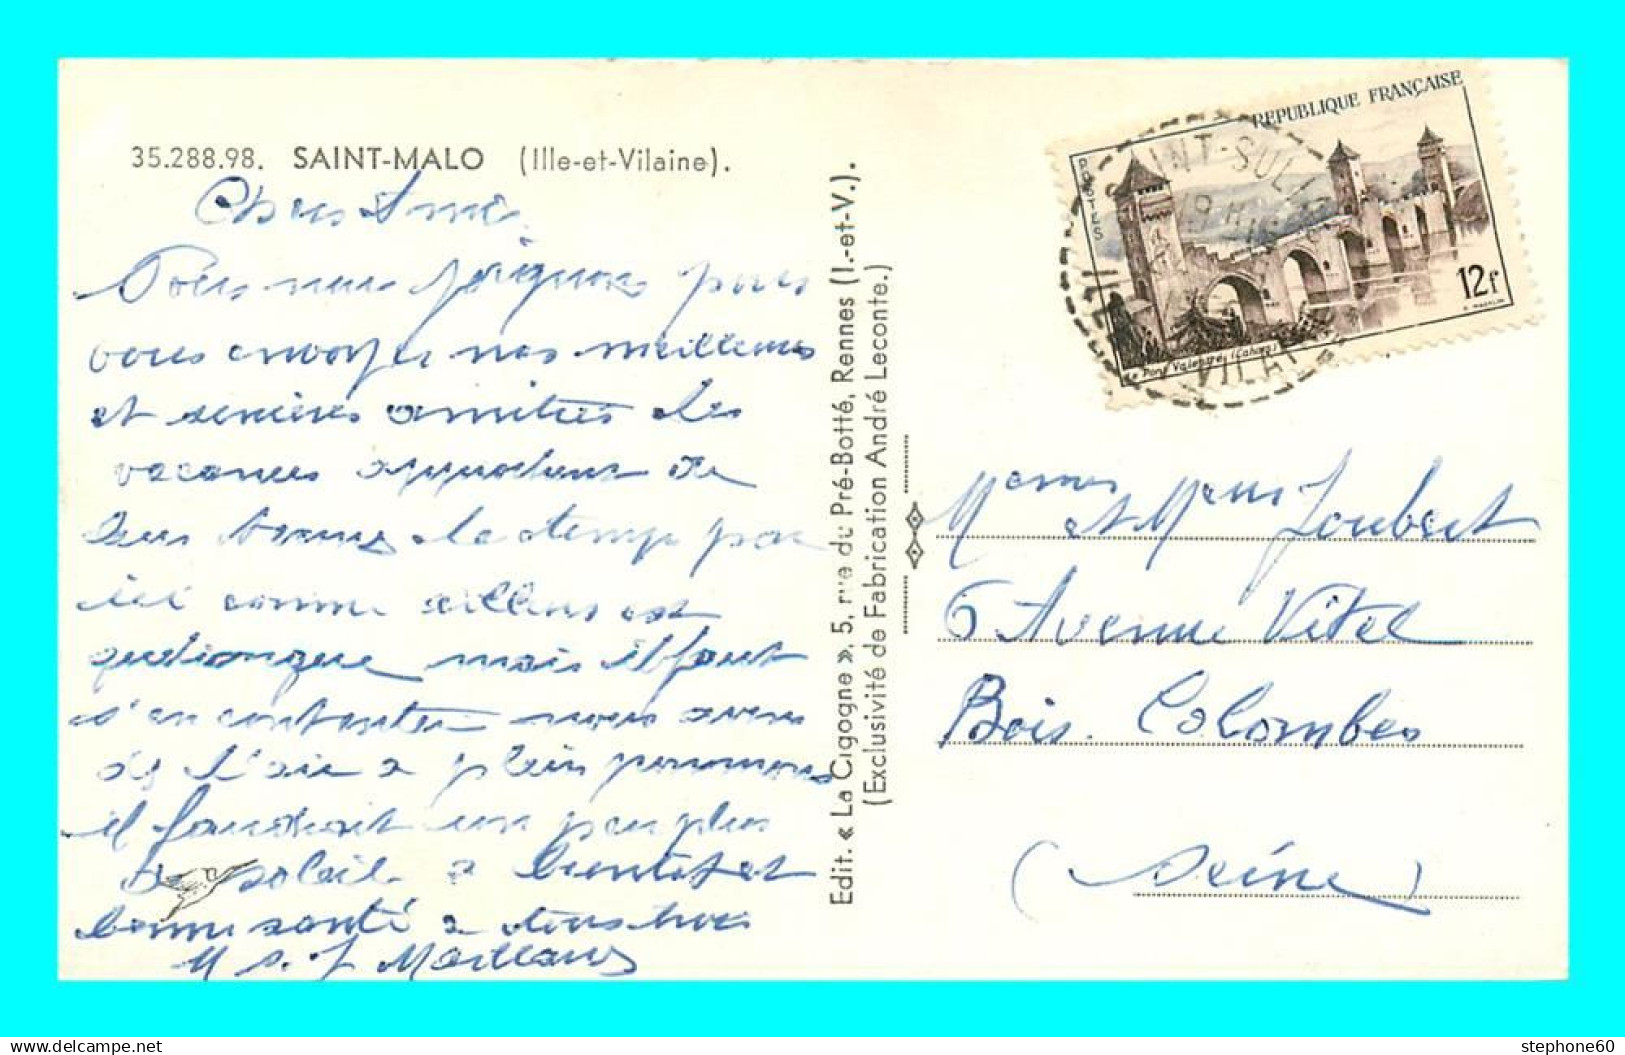 35.288.98. SAINT-MALO (Ille-et-Vilaine).
Chers Amis,
nous joignons pour
vous envoyer nos meilleures
et sincères amitiés les
vacances
le temps par
ici comme ailleurs est
quelconque mais il faut
s'en contenter nous avons
de l'air a plein poumons
il faudrait un peu plus
de soleil a bientot et
bonne santé a tous
M
Edit. « La Cigogne », 5, rue du Pré-Botté, Rennes (I.-et-V.).
(Exclusivité de Fabrication André Leconte.)
REPUBLIQUE FRANÇAISE
POSTES
12f
Le Pont Valentré, (Cahors)
INT-SUL
VILAI
et Joubert
6 Avenue Vitel
Bois. Colombes
(Seine)
www.delcampe.net
stephone60